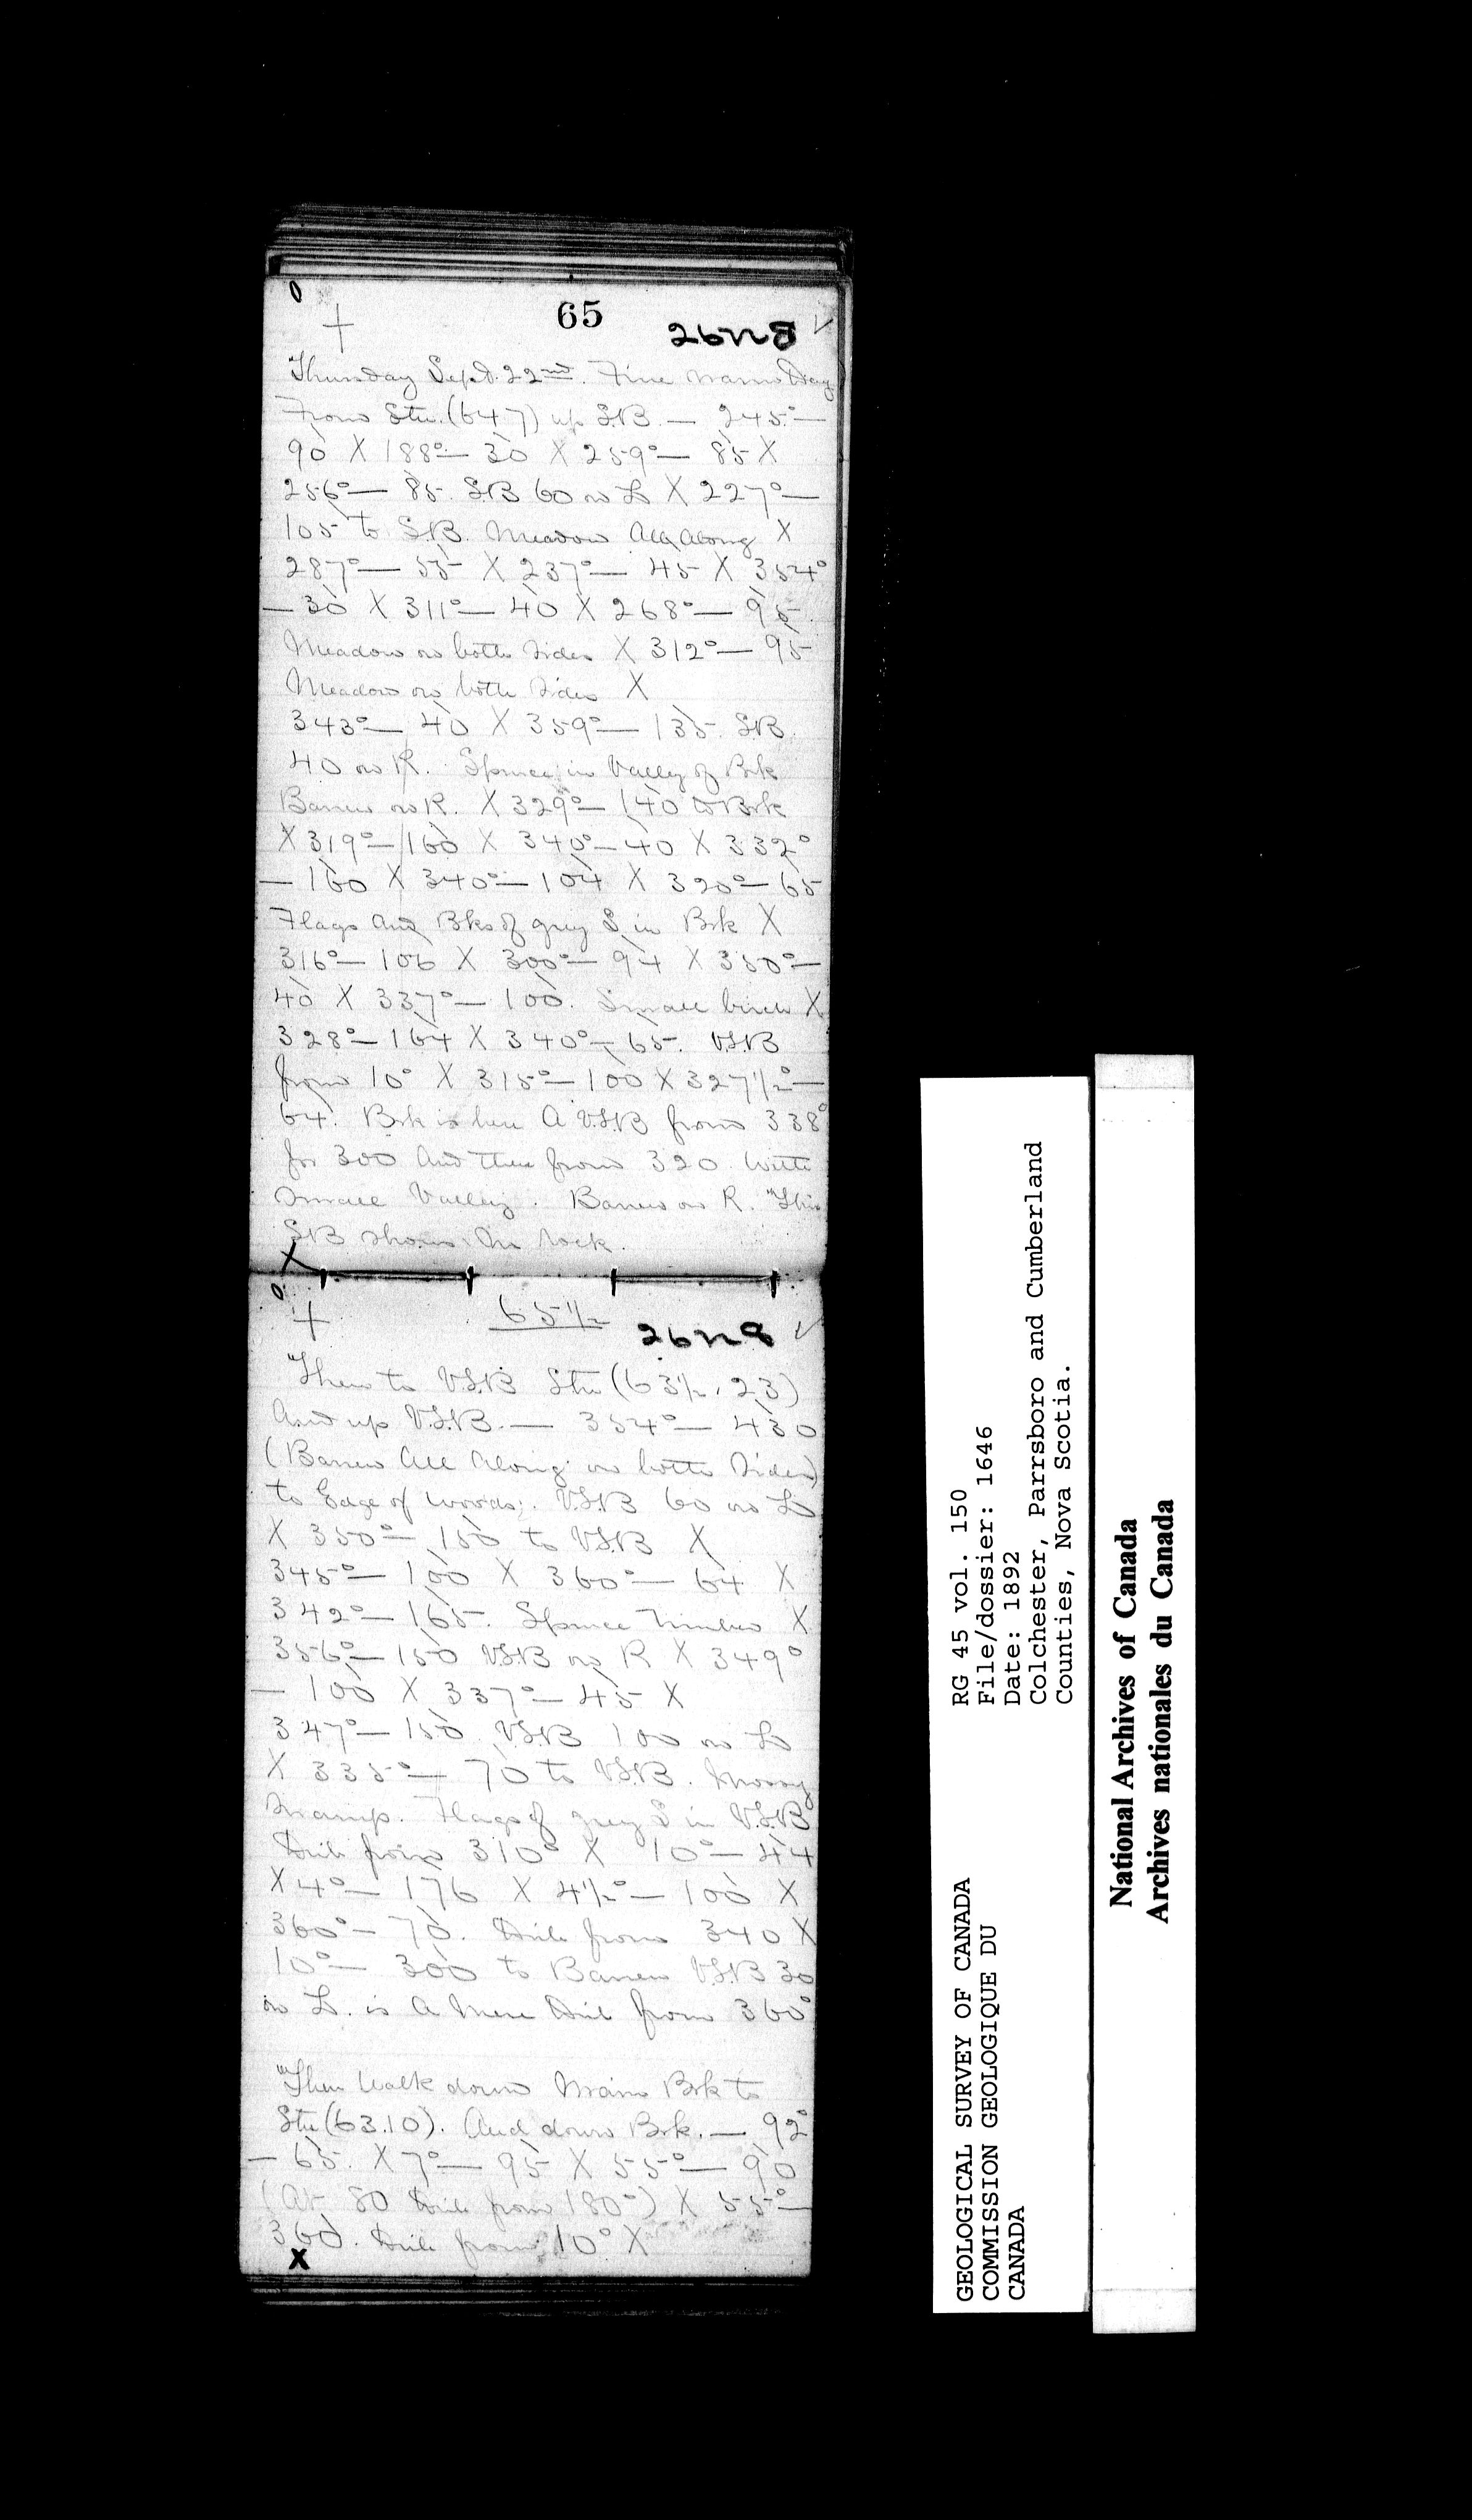 65
26N8
Thursday Sept. 22nd. Fine warm Day
From Stn. (64.7) up S.B. — 245°—
90 X 188°— 30 X 259°— 85 X
256°— 85. S.B 60 on L X 227°—
105 to S.B. Meadow All Along X
287°— 55 X 237°— 45 X 354°
— 30 X 311°— 40 X 268°— 95.
Meadow on both sides X 312°— 95
Meadow on both sides X
343°— 40 X 359°— 135. S.B.
40 on R. Spruce in Valley of Brk
Barren on R. X 329°— 140 to Brk
X 319°— 160 X 340°— 40 X 332°
— 160 X 340°— 104 X 320°— 65
Flags and Bks of grey S. in Brk X
316°— 106 X 300°— 94 X 350°—
40 X 337°— 100. Small birch X
328°— 164 X 340°— 65. V.S.B
from 10° X 315°— 100 X 327 1/2°—
64. Brk is here A V.S.B from 338°
for 300 And then from 320. With
small Valley. Barren on R. This
S.B shows no rock.
X
65 1/2
26N8
Then to V.S.B Stn (63 1/2, 23)
And up V.S.B. — 354°— 430
(Barren All Along on both sides)
to Edge of woods. V.S.B 60 on L
X 350°— 150 to V.S.B X
345°— 100 X 360°— 64 X
342°— 165. Spruce timber X
356°— 150 V.S.B on R X 349°
— 100 X 337°— 45 X
347°— 150 V.S.B 100 on L
X 335°— 70 to V.S.B. Mossy
Swamp. Flags of grey S in V.S.B
from 310° X 10°— 44
X 4°— 176 X 4 1/2°— 100 X
360°— 70. from 340 X
10°— 300 to Barren V.S.B 30
on L. is A mere from 360°
Then Walk down Main Brk to
Stn (63.10). And down Brk. — 92°
— 65. X 7°— 95 X 55°— 90
(At 80 from 180°) X 55°—
360. from 10° X
X
GEOLOGICAL SURVEY OF CANADA
COMMISSION GEOLOGIQUE DU
CANADA
RG 45 vol. 150
File/dossier: 1646
Date: 1892
Colchester, Parrsboro and Cumberland
Counties, Nova Scotia.
National Archives of Canada
Archives nationales du Canada